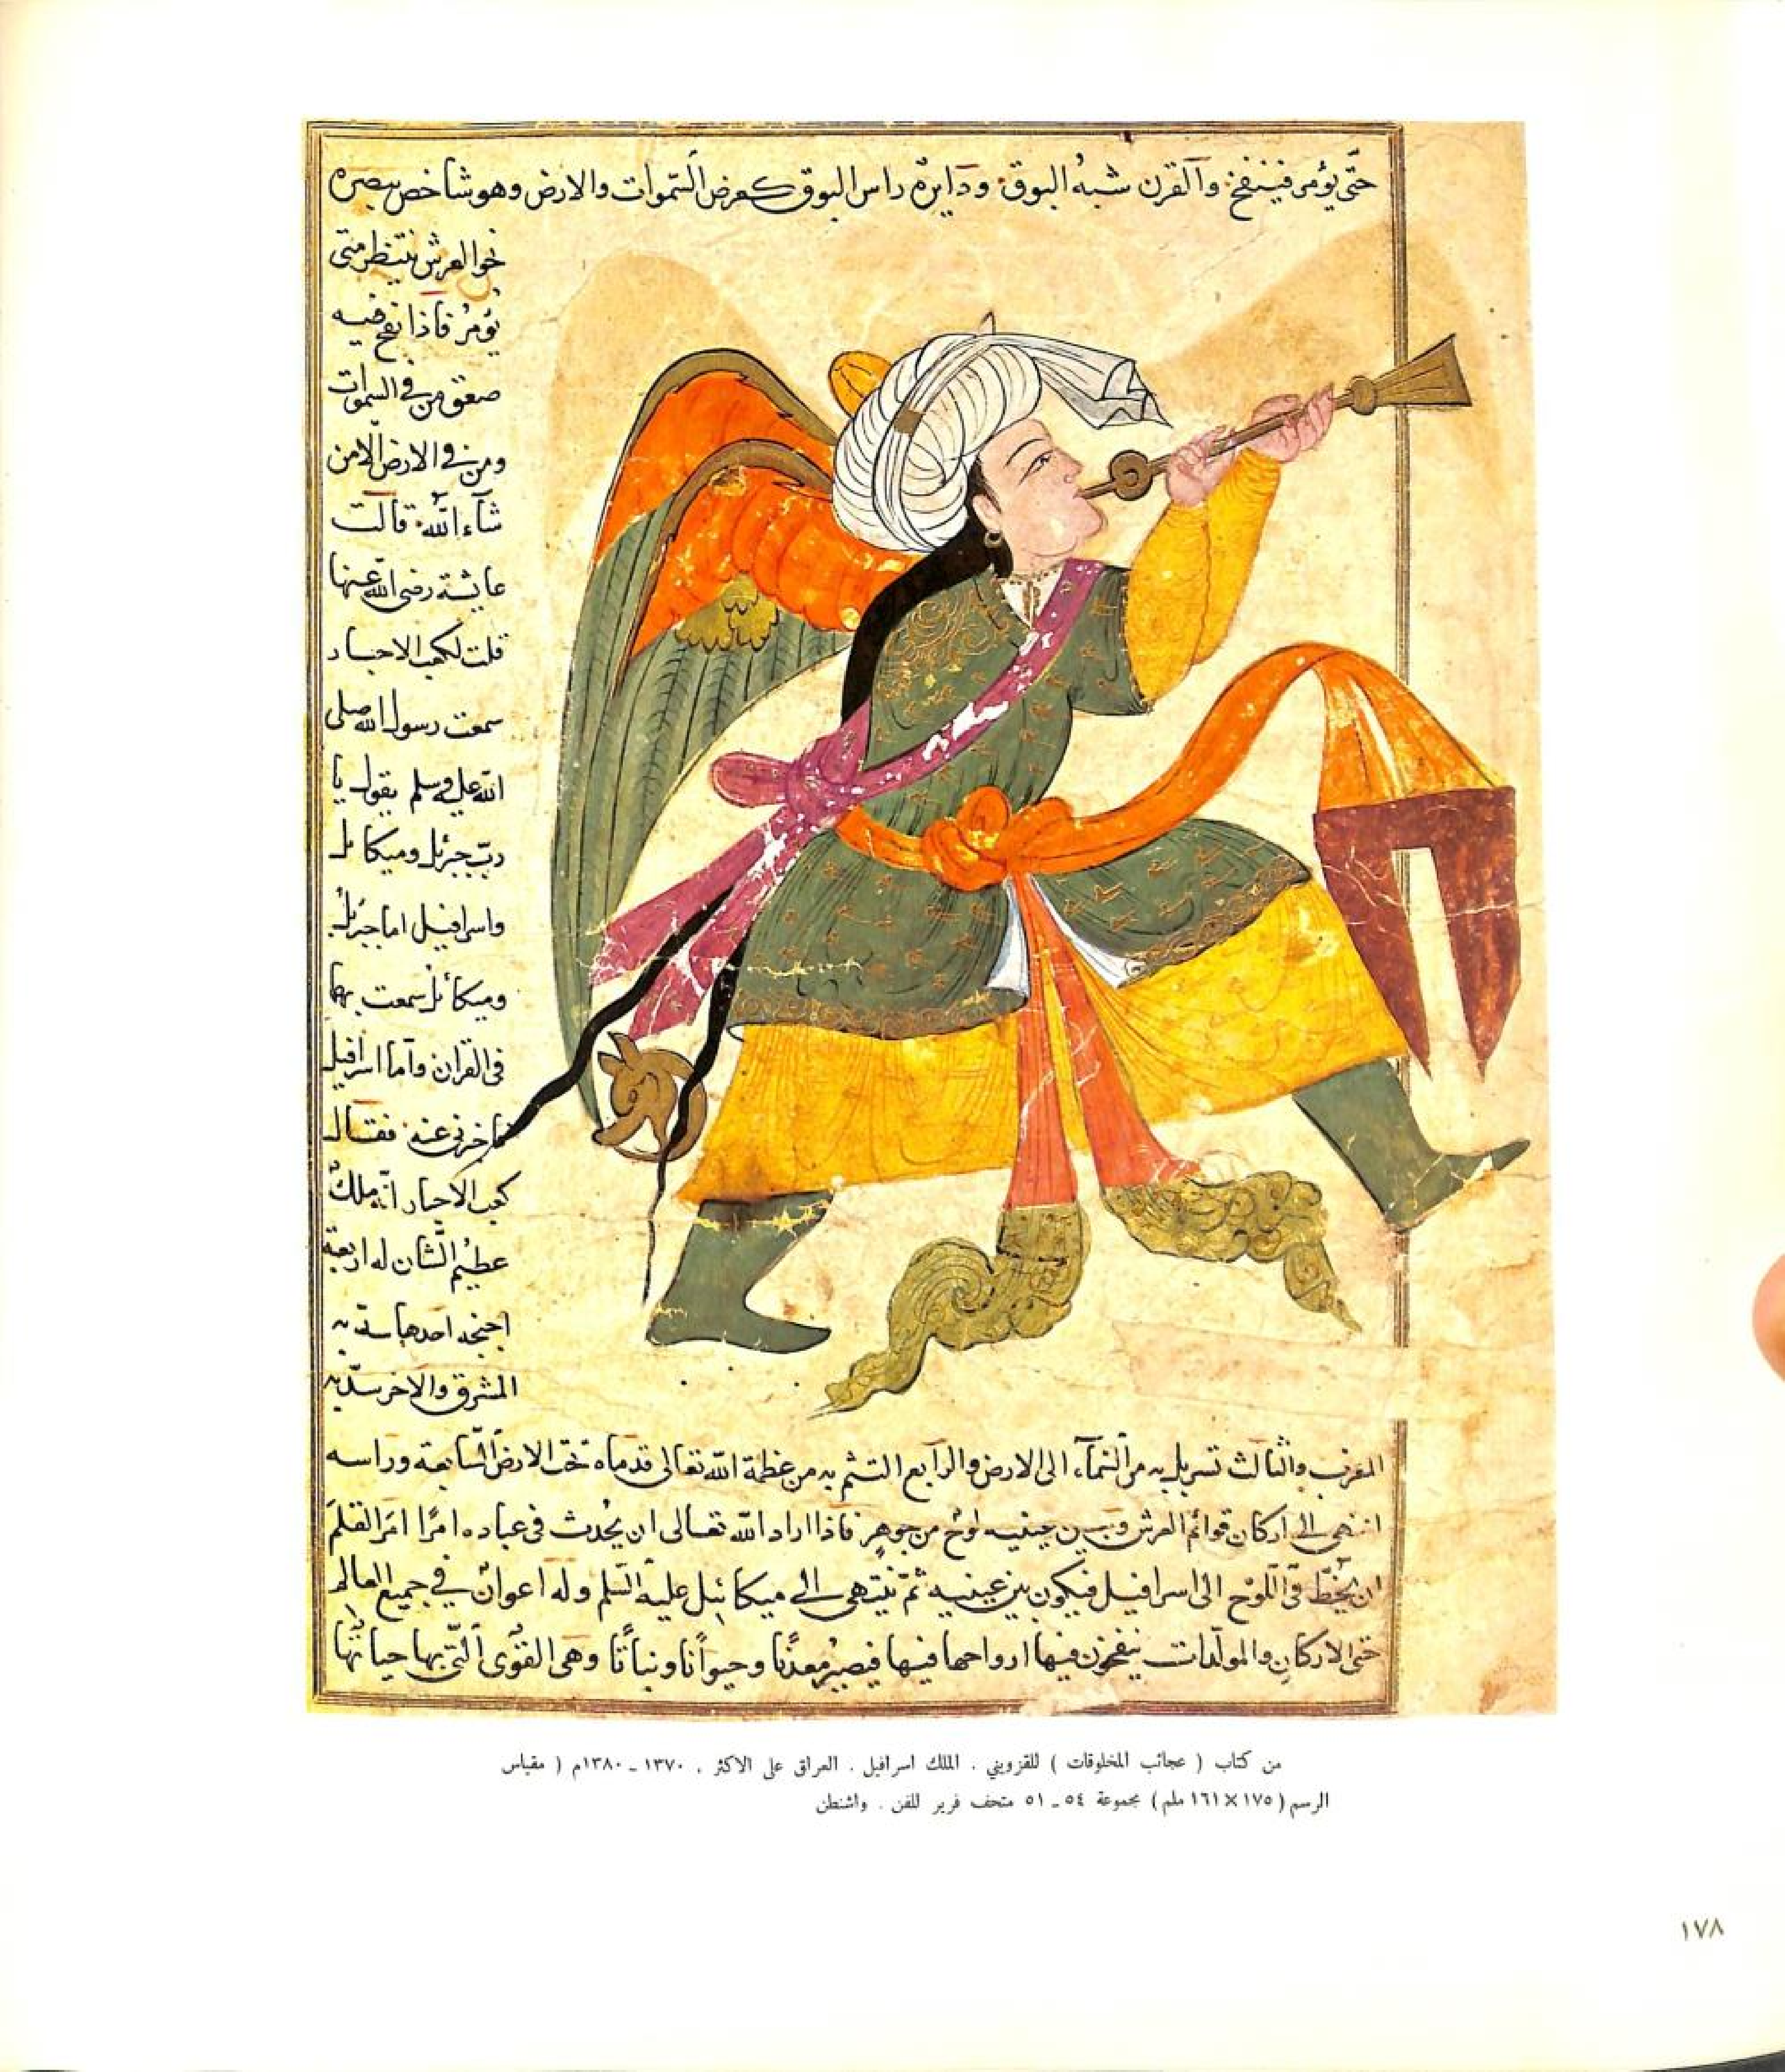 حتّى يؤمر فينفخ والقرن شبه البوق ودايرة راس البوق كعرض السّموات والارض وهو شاخص ببصره
نحو العرش ينتظر متى
يؤمر فاذا نفخ فيه
صعق من في السموات
ومن في الارض الّا من
شآء اللّه قالت
عايشة رضى اللّه عنها
قلت لكعب الاحبار
سمعت رسول اللّه صلى
اللّه عليه وسلم يقول يا
ربّ جبرئل وميكائل
واسرافيل اما جبرئل
وميكائل سمعت بهما
فى القران وآما اسرافيل
فاخبرنى عنه فقال
كعب الاحبار انّه ملك
عظيم الشّان له اربعة
اجنحة احدها سدّ به
المشرق والاخر سدّ به
المغرب والثالث تسربل به من السّمآء الى الارض والرّابع التثم به من عظمة اللّه تعالى قدماه تحت الارض السّابعة وراسه
انتهى الى اركان قوائم العرش وبين عينيه لوح من جوهر فاذا اراد اللّه تعالى ان يُحدث فى عباده امرًا امَر القلمَ
ان يخطّ فى اللّوح الى اسرافيل فيكون بين عينيه ثمّ ينتهى الى ميكائيل عليه السّلم وله اعوانٌ في جميع العالم
حتى الاركان والمولّدات ينفخون فيها ارواحها فيها فيصير معدنًا وحيوانًا ونباتًا وهى القوى الّتى بها حياتها
من كتاب ( عجائب المخلوقات ) للقزويني . الملك اسرافيل . العراق على الاكثر . ١٣٧٠ ـ ١٣٨٠م ( مقياس
الرسم ( ١٧٥ × ١٦١ ملم ) مجموعة ٥٤ ـ ٥١ متحف فرير للفن . واشنطن
١٧٨